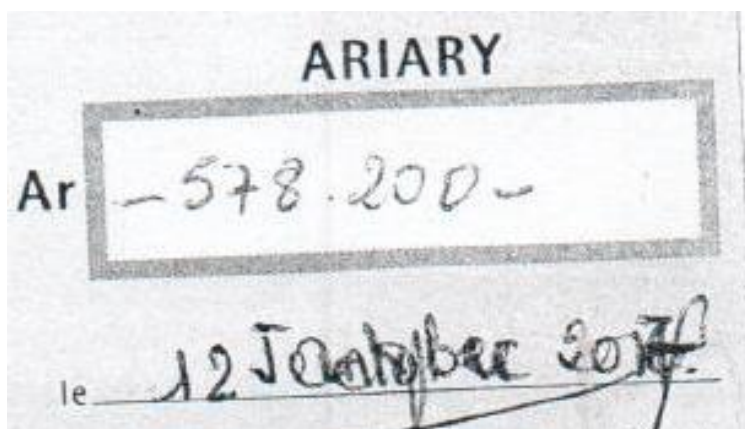 ARIARY
Ar -578.200-
le 12